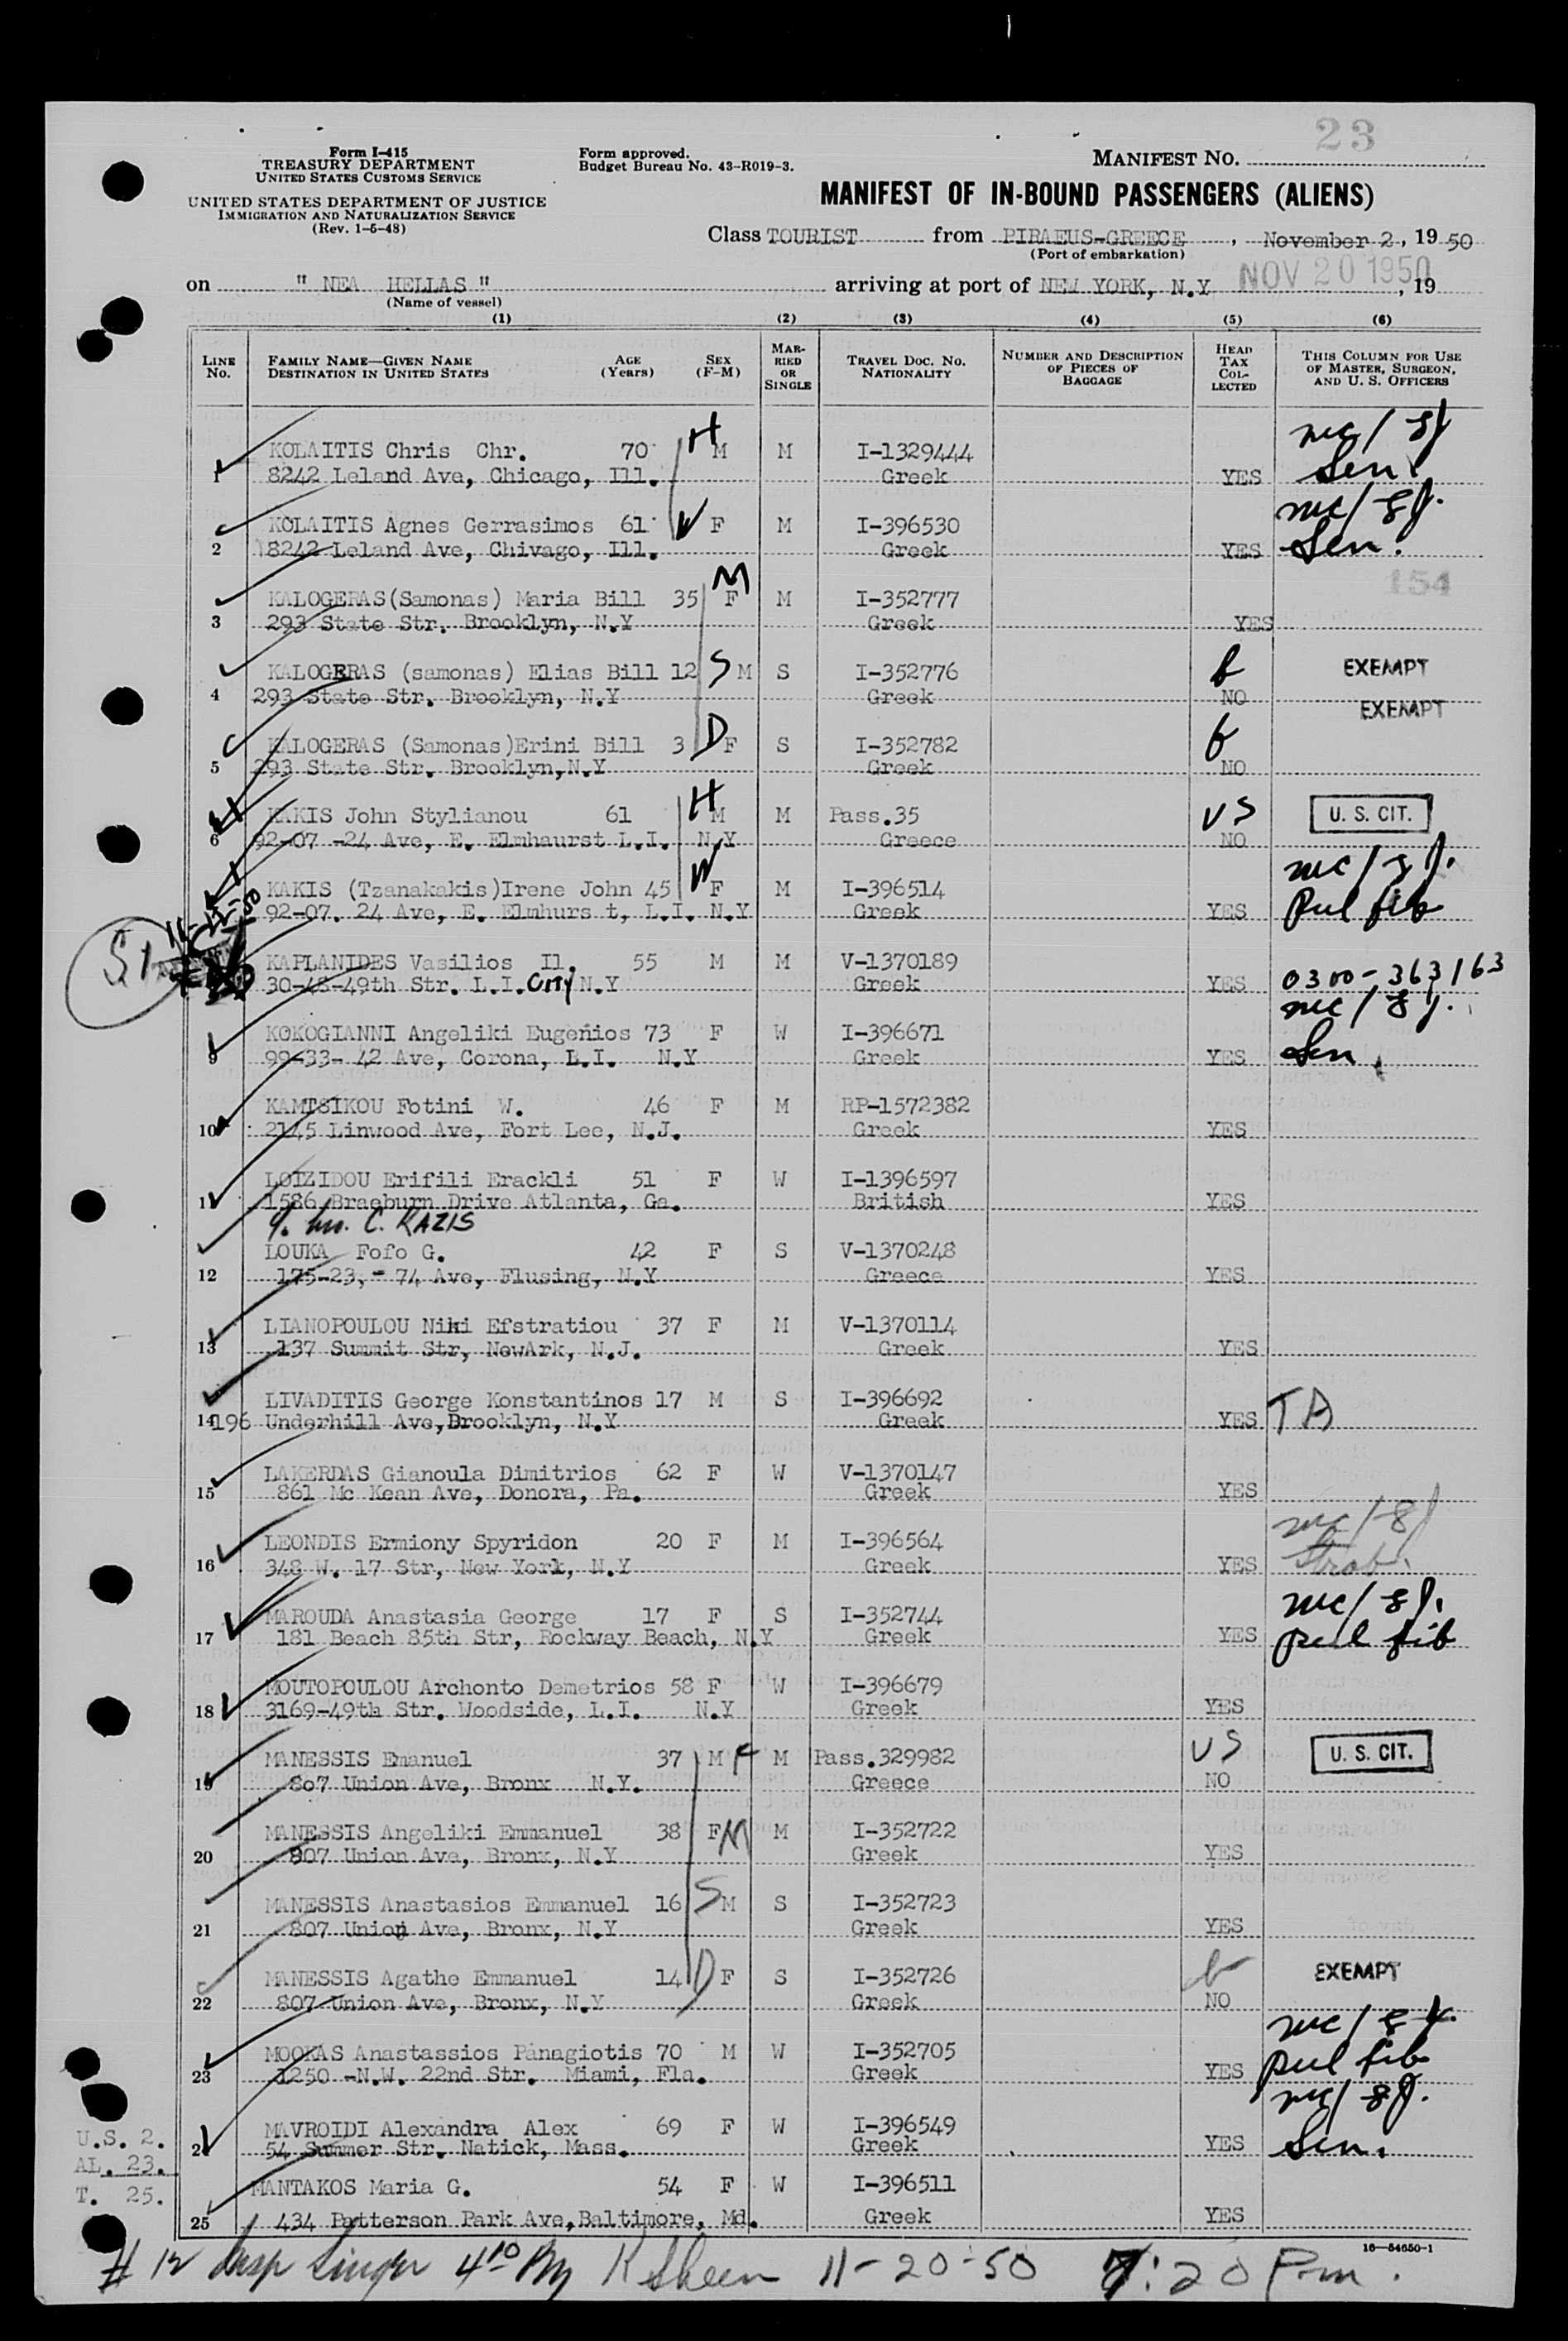 23
Form I-415
TREASURY DEPARTMENT
UNITED STATES CUSTOMS SERVICE
UNITED STATES DEPARTMENT OF JUSTICE
IMMIGRATION AND NATURALIZATION SERVICE
(Rev. 1-6-48)
Form approved.
Budget Bureau No. 43-R019-3.
MANIFEST No.
MANIFEST OF IN-BOUND PASSENGERS (ALIENS)
Class TOURIST from PIRAEUS-GREECE, November 2, 19 50
(Port of embarkation)
on " NEA HELLAS " arriving at port of NEW YORK, N.Y NOV 20 1950, 19
(Name of vessel)
(1) (2) (3) (4) (5) (6)
LINE No. FAMILY NAME—GIVEN NAME DESTINATION IN UNITED STATES AGE (Years) SEX (F-M) MARRIED OR SINGLE TRAVEL DOC. No. NATIONALITY NUMBER AND DESCRIPTION OF PIECES OF BAGGAGE HEAD TAX COLLECTED THIS COLUMN FOR USE OF MASTER, SURGEON, AND U. S. OFFICERS
KOLAITIS Chris Chr. 70 H M M I-1329444
1 8242 Leland Ave, Chicago, Ill. Greek YES Sen.
KOLAITIS Agnes Gerrasimos 61 W F M I-396530
2 8242 Leland Ave, Chivago, Ill. Greek YES Sen.
154
KALOGERAS(Samonas) Maria Bill 35 M F M I-352777
3 293 State Str. Brooklyn, N.Y Greek YES
KALOGERAS (samonas) Elias Bill 12 S M S I-352776 EXEMPT
4 293 State Str. Brooklyn, N.Y Greek NO
EXEMPT
KALOGERAS (Samonas)Erini Bill 3 D F S I-352782
5 293 State Str. Brooklyn,N.Y Greek NO
KAKIS John Stylianou 61 H M M Pass.35 US U. S. CIT.
6 92-07 -24 Ave, E. Elmhaurst L.I. N.Y Greece NO
KAKIS (Tzanakakis)Irene John 45 W F M I-396514
92-07. 24 Ave, E. Elmhurs t, L.I. N.Y Greek YES Pul fib
11-17-50
KAPLANIDES Vasilios Il. 55 M M V-1370189
30-48-49th Str. L.I. City N.Y Greek YES 0300-363163
KOKOGIANNI Angeliki Eugenios 73 F W I-396671
9 99-33- 42 Ave, Corona, L.I. N.Y Greek YES Sen.
KAMTSIKOU Fotini W. 46 F M RP-1572382
10 2145 Linwood Ave, Fort Lee, N.J. Greek YES
LOIZIDOU Erifili Erackli 51 F W I-1396597
11 1586 Braeburn Drive Atlanta, Ga. British YES
C. KAZIS
LOUKA Fofo G. 42 F S V-1370248
12 175-23,- 74 Ave, Flusing, N.Y Greece YES
LIANOPOULOU Niki Efstratiou 37 F M V-1370114
13 137 Summit Str, NewArk, N.J. Greek YES
LIVADITIS George Konstantinos 17 M S I-396692
14 196 Underhill Ave,Brooklyn, N.Y Greek YES TA
LAKERDAS Gianoula Dimitrios 62 F W V-1370147
15 861 Mc Kean Ave, Donora, Pa. Greek YES
LEONDIS Ermiony Spyridon 20 F M I-396564
16 348 W. 17 Str, New York, N.Y Greek YES Strab.
MAROUDA Anastasia George 17 F S I-352744
17 181 Beach 85th Str, Rockway Beach, N.Y Greek YES Pul fib
MOUTOPOULOU Archonto Demetrios 58 F W I-396679
18 3169-49th Str. Woodside, L.I. N.Y Greek YES
MANESSIS Emanuel 37 M F M Pass.329982 US U. S. CIT.
19 807 Union Ave, Bronx N.Y. Greece NO
MANESSIS Angeliki Emmanuel 38 F M M I-352722
20 807 Union Ave, Bronx, N.Y Greek YES
MANESSIS Anastasios Emmanuel 16 S M S I-352723
21 807 Union Ave, Bronx, N.Y Greek YES
MANESSIS Agathe Emmanuel 14 D F S I-352726 EXEMPT
22 807 Union Ave, Bronx, N.Y Greek NO
MOOKAS Anastassios Panagiotis 70 M W I-352705
23 1250 -N.W. 22nd Str. Miami, Fla. Greek YES Pul fib
MAVROIDI Alexandra Alex 69 F W I-396549
24 54 Summer Str. Natick, Mass. Greek YES Sen.
MANTAKOS Maria G. 54 F W I-396511
25 434 Patterson Park Ave,Baltimore, Md. Greek YES
U.S. 2.
AL. 23.
T. 25.
16—54650-1
# 12 By 11-20-50 7:20 Pm.